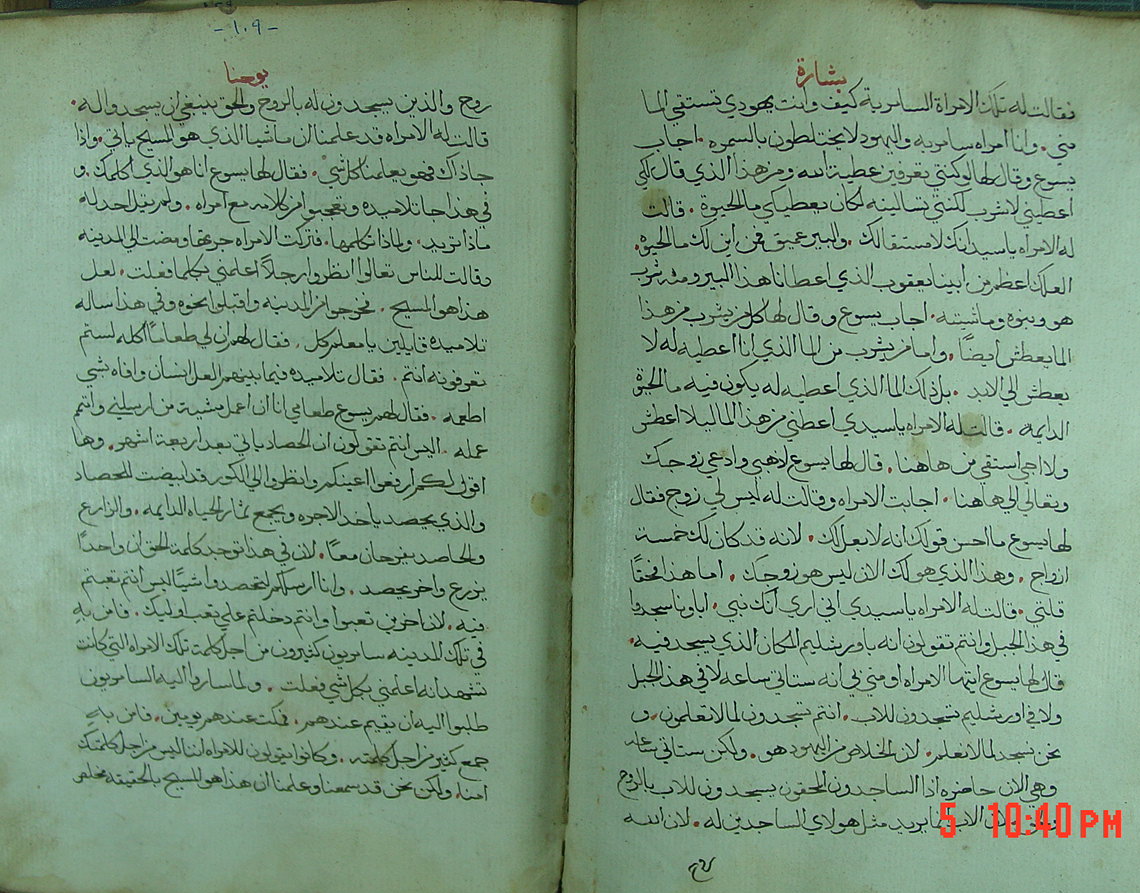 بشارة
فقالت له تلك الامراة السامرية كيف وانت يهودي تستقي الما
مني. وانا امراه سامريه واليهود لا يختلطون بالسمره. اجاب
يسوع وقال لها لو كنتي تعرفين عطية الله ومن هذا الذي قال لكي
اعطيني لاشرب لكنتي تسالينه لكان يعطيكي ما الحيوة. قالت
له الامراه ياسيد انك لا مستقا لك. والبير عميق فمن اين لك ما الحيوة
العلك اعظم من ابينا يعقوب الذي اعطانا هذا البير ومنه شرب
هو وبنوه وماشيته. اجاب يسوع وقال لها كل من يشرب من هذا
الما يعطش ايضًا. واما من يشرب من الما الذي انا اعطيه له لا
يعطش الي الابد. بل ذلك الما الذي اعطيه له يكون فيه ما الحيوة
الدايمه. قالت له الامراه ياسيدي اعطني من هذا الما ليلا اعطش
ولا اجي استقي من هاهنا. قال لها يسوع اذهبي وادعي زوجك
وتعالي الي هاهنا. اجابت الامراه وقالت له ليس لي زوج فقال
لها يسوع ما احسن قولك انه لا بعل لك. لانه قد كان لك خمسة
ازواج. وهذا الذي هو لك الان ليس هو زوجك. اما هذا فحقًا
قلتي. قالت له الامراه ياسيدي اني اري انك نبي. اباونا سجدوا
في هذا الجبل وانتم تقولون انه باورشليم المكان الذي يسجد فيه.
قال لها يسوع ايتها الامراه اومني بي انه ستاتي ساعه لا في هذا الجبل
ولا في اورشليم تسجدون للاب. انتم تسجدون لما لا تعلمون. و
نحن نسجد لما نعلم. لان الخلاص من اليهود هو. ولكن ستاتي ساعه
وهي الان حاضره اذا الساجدون المحقون يسجدون للاب بالروح
لان الاب انما يريد مثل هولاي الساجدين له. لان الله
روح
5 10:40 PM
-١٠٩-
يوحنا
روح والذين يسجدون له بالروح والحق ينبغي ان يسجدوا له.
قالت له الامراه قد علمنا ان ماشيا الذي هو المسيح ياتي. واذا
جا ذاك فهو يعلمنا كل شي. فقال لها يسوع انا هو الذي اكلمك. و
في هذا جا تلاميذه وتعجبوا من كلامه مع امراه. ولم يقل احد له
ماذا تريد. ولماذا تكلمها. فتركت الامراه جرتها ومضت الي المدينه
وقالت للناس تعالوا انظروا رجلًا اعلمني بكلما فعلت. لعل
هذا هو المسيح. فخرجوا من المدينه واقبلوا نحوه وفي هذا ساله
تلاميذه قايلين يا معلم كل. فقال لهم ان لي طعامًا اكله لستم
تعرفونه انتم. فقال تلاميذه فيما بينهم العل انسان وافاه بشي
اطعمه. فقال لهم يسوع طعامي انا ان اعمل مشيت من ارسلني واتم
عمله. اليس انتم تقولون ان الحصاد ياتي بعد اربعة اشهر. وها
اقول لكم ارفعوا اعينكم وانظروا الي الكور قد ابيضت للحصاد
والذي يحصد ياخد الاجره ويجمع ثمار الحياه الدايمه. والزارع
والحاصد يفرحان معًا. لان في هذا توجد كلمة الحق ان واحدًا
يزرع واخر يحصد. وانا ارسلكم لتحصدوا شيًا ليس انتم تعبتم
فيه. لان اخرين تعبوا وانتم دخلتم علي تعب اوليك. فامن به
في تلك المدينه سامريون كثيرون من اجل كلمة تلك الامراه التي كانت
تشهد انه اعلمني بكل شي فعلت. ولما ساروا اليه السامريون
طلبوا اليه ان يقيم عندهم. فمكث عندهم يومين. فامن به
جمع كثير من اجل كلمته. وكانوا يقولون للامراه اننا ليس من اجل كلمتك
امنا. ولكن نحن قد سمعنا وعلمنا ان هذا هو المسيح بالحقيقه مخلص